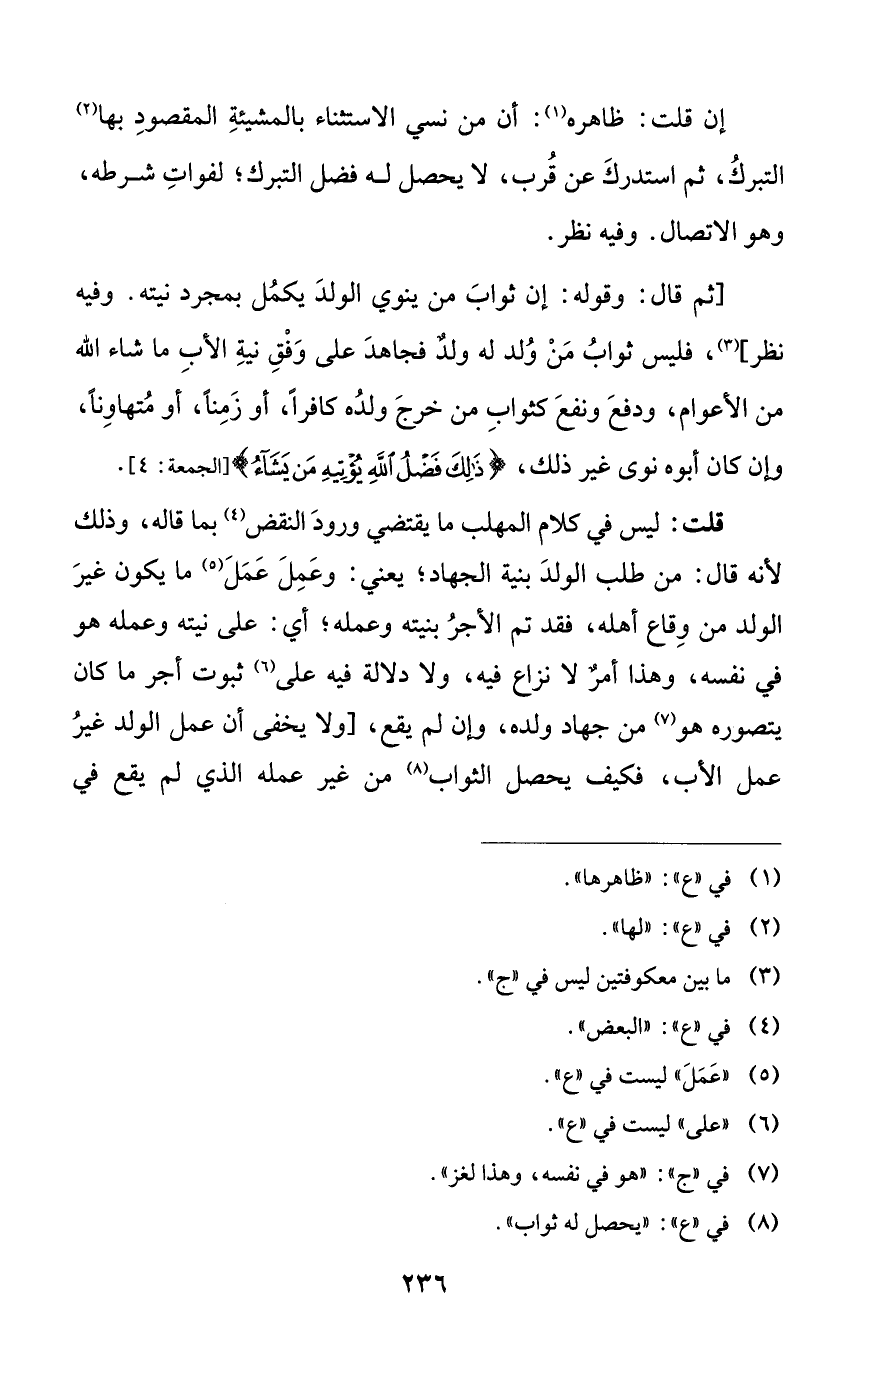 إن قلت: ظاهره(١): أن من نسي الاستثناء بالمشيئةِ المقصودِ بها(٢)
التبركُ، ثم استدركَ عن قُرب، لا يحصل لـه فضل التبرك؛ لفواتِ شـرطه،
وهو الاتصال. وفيه نظر.
[ثم قال: وقوله: إن ثوابَ من ينوي الولدَ يكمُل بمجرد نيته. وفيه
نظر](٣)، فليس ثوابُ مَنْ وُلد له ولدٌ فجاهدَ على وَفْقِ نيةِ الأبِ ما شاء الله
من الأعوام، ودفعَ ونفعَ كثوابِ من خرجَ ولدُه كافراً، أو زَمِناً، أو مُتهاوِناً،
وإن كان أبوه نوى غير ذلك، ﴿ذَٰلِكَ فَضْلُ ٱللَّهِ يُؤْتِيهِ مَن يَشَآءُ﴾[الجمعة: ٤].
قلت: ليس في كلام المهلب ما يقتضي ورودَ النقض(٤) بما قاله، وذلك
لأنه قال: من طلب الولدَ بنية الجهاد؛ يعني: وعَمِلَ عَمَلَ(٥) ما يكون غيرَ
الولد من وِقاع أهله، فقد تم الأجرُ بنيته وعمله؛ أي: على نيته وعمله هو
في نفسه، وهذا أمرٌ لا نزاع فيه، ولا دلالة فيه على(٦) ثبوت أجر ما كان
يتصوره هو(٧) من جهاد ولده، وإن لم يقع، [ولا يخفى أن عمل الولد غيرُ
عمل الأب، فكيف يحصل الثواب(٨) من غير عمله الذي لم يقع في
(١) في «ع»: «ظاهرها».
(٢) في «ع»: «لها».
(٣) ما بين معكوفتين ليس في «ج».
(٤) في «ع»: «البعض».
(٥) «عَمَلَ» ليست في «ع».
(٦) «على» ليست في «ع».
(٧) في «ج»: «هو في نفسه، وهذا لغز».
(٨) في «ع»: «يحصل له ثواب».
٢٣٦